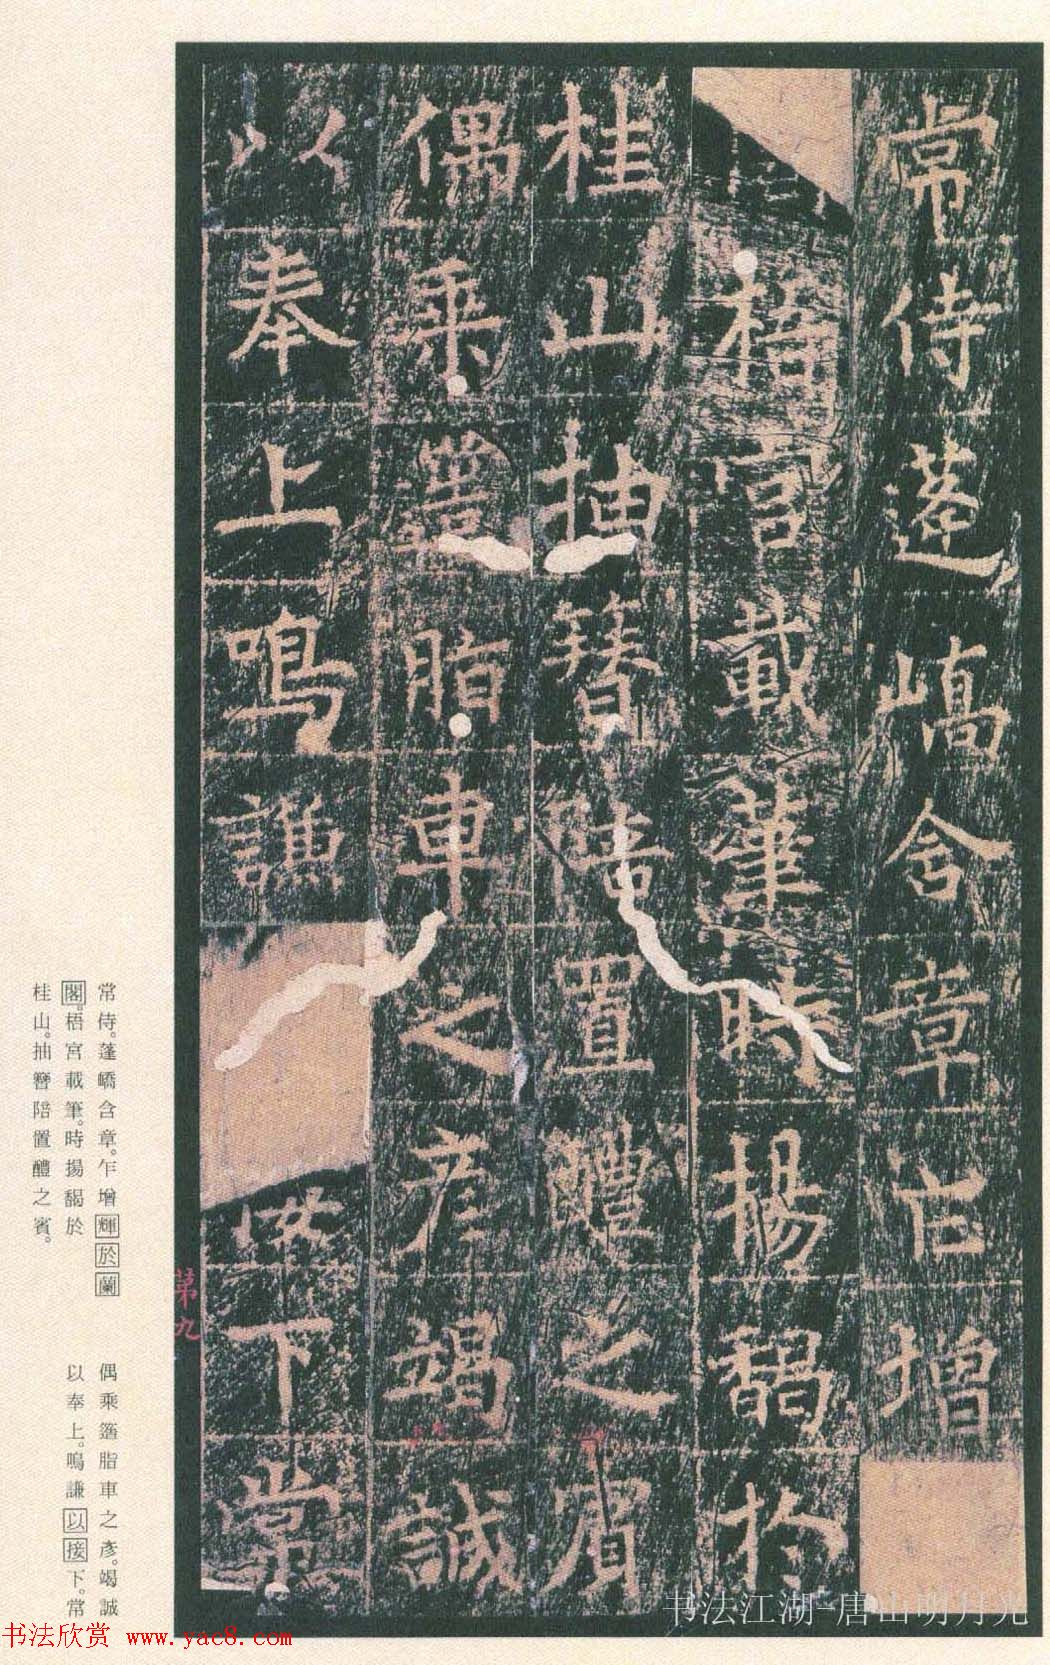 常侍蓬嶠含章乍增
梧宮載筆時揚馤於
桂山抽簪陪置醴之賓
偶乘簉脂車之彥竭誠
以奉上鳴謙接下常
第九
常侍。蓬嶠含章。乍增輝於蘭
閣。梧宮載筆。時揚馤於
桂山。抽簪陪置醴之賓。
偶乘簉脂車之彥。竭誠
以奉上。鳴謙以接下。常
书法欣赏 www.yac8.com
书法江湖-唐山明月光